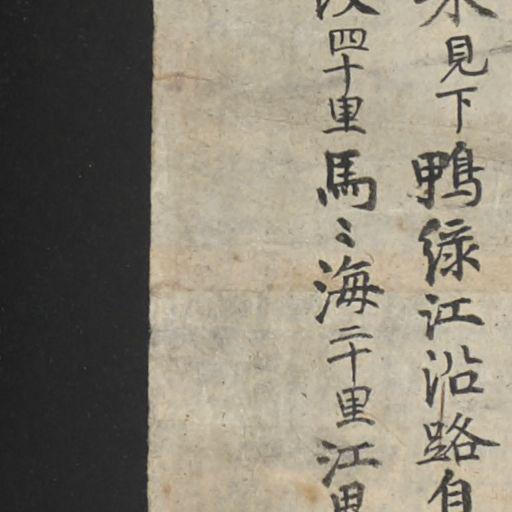 見下鴨綠江沿路自
四十里馬〻海二十里江界